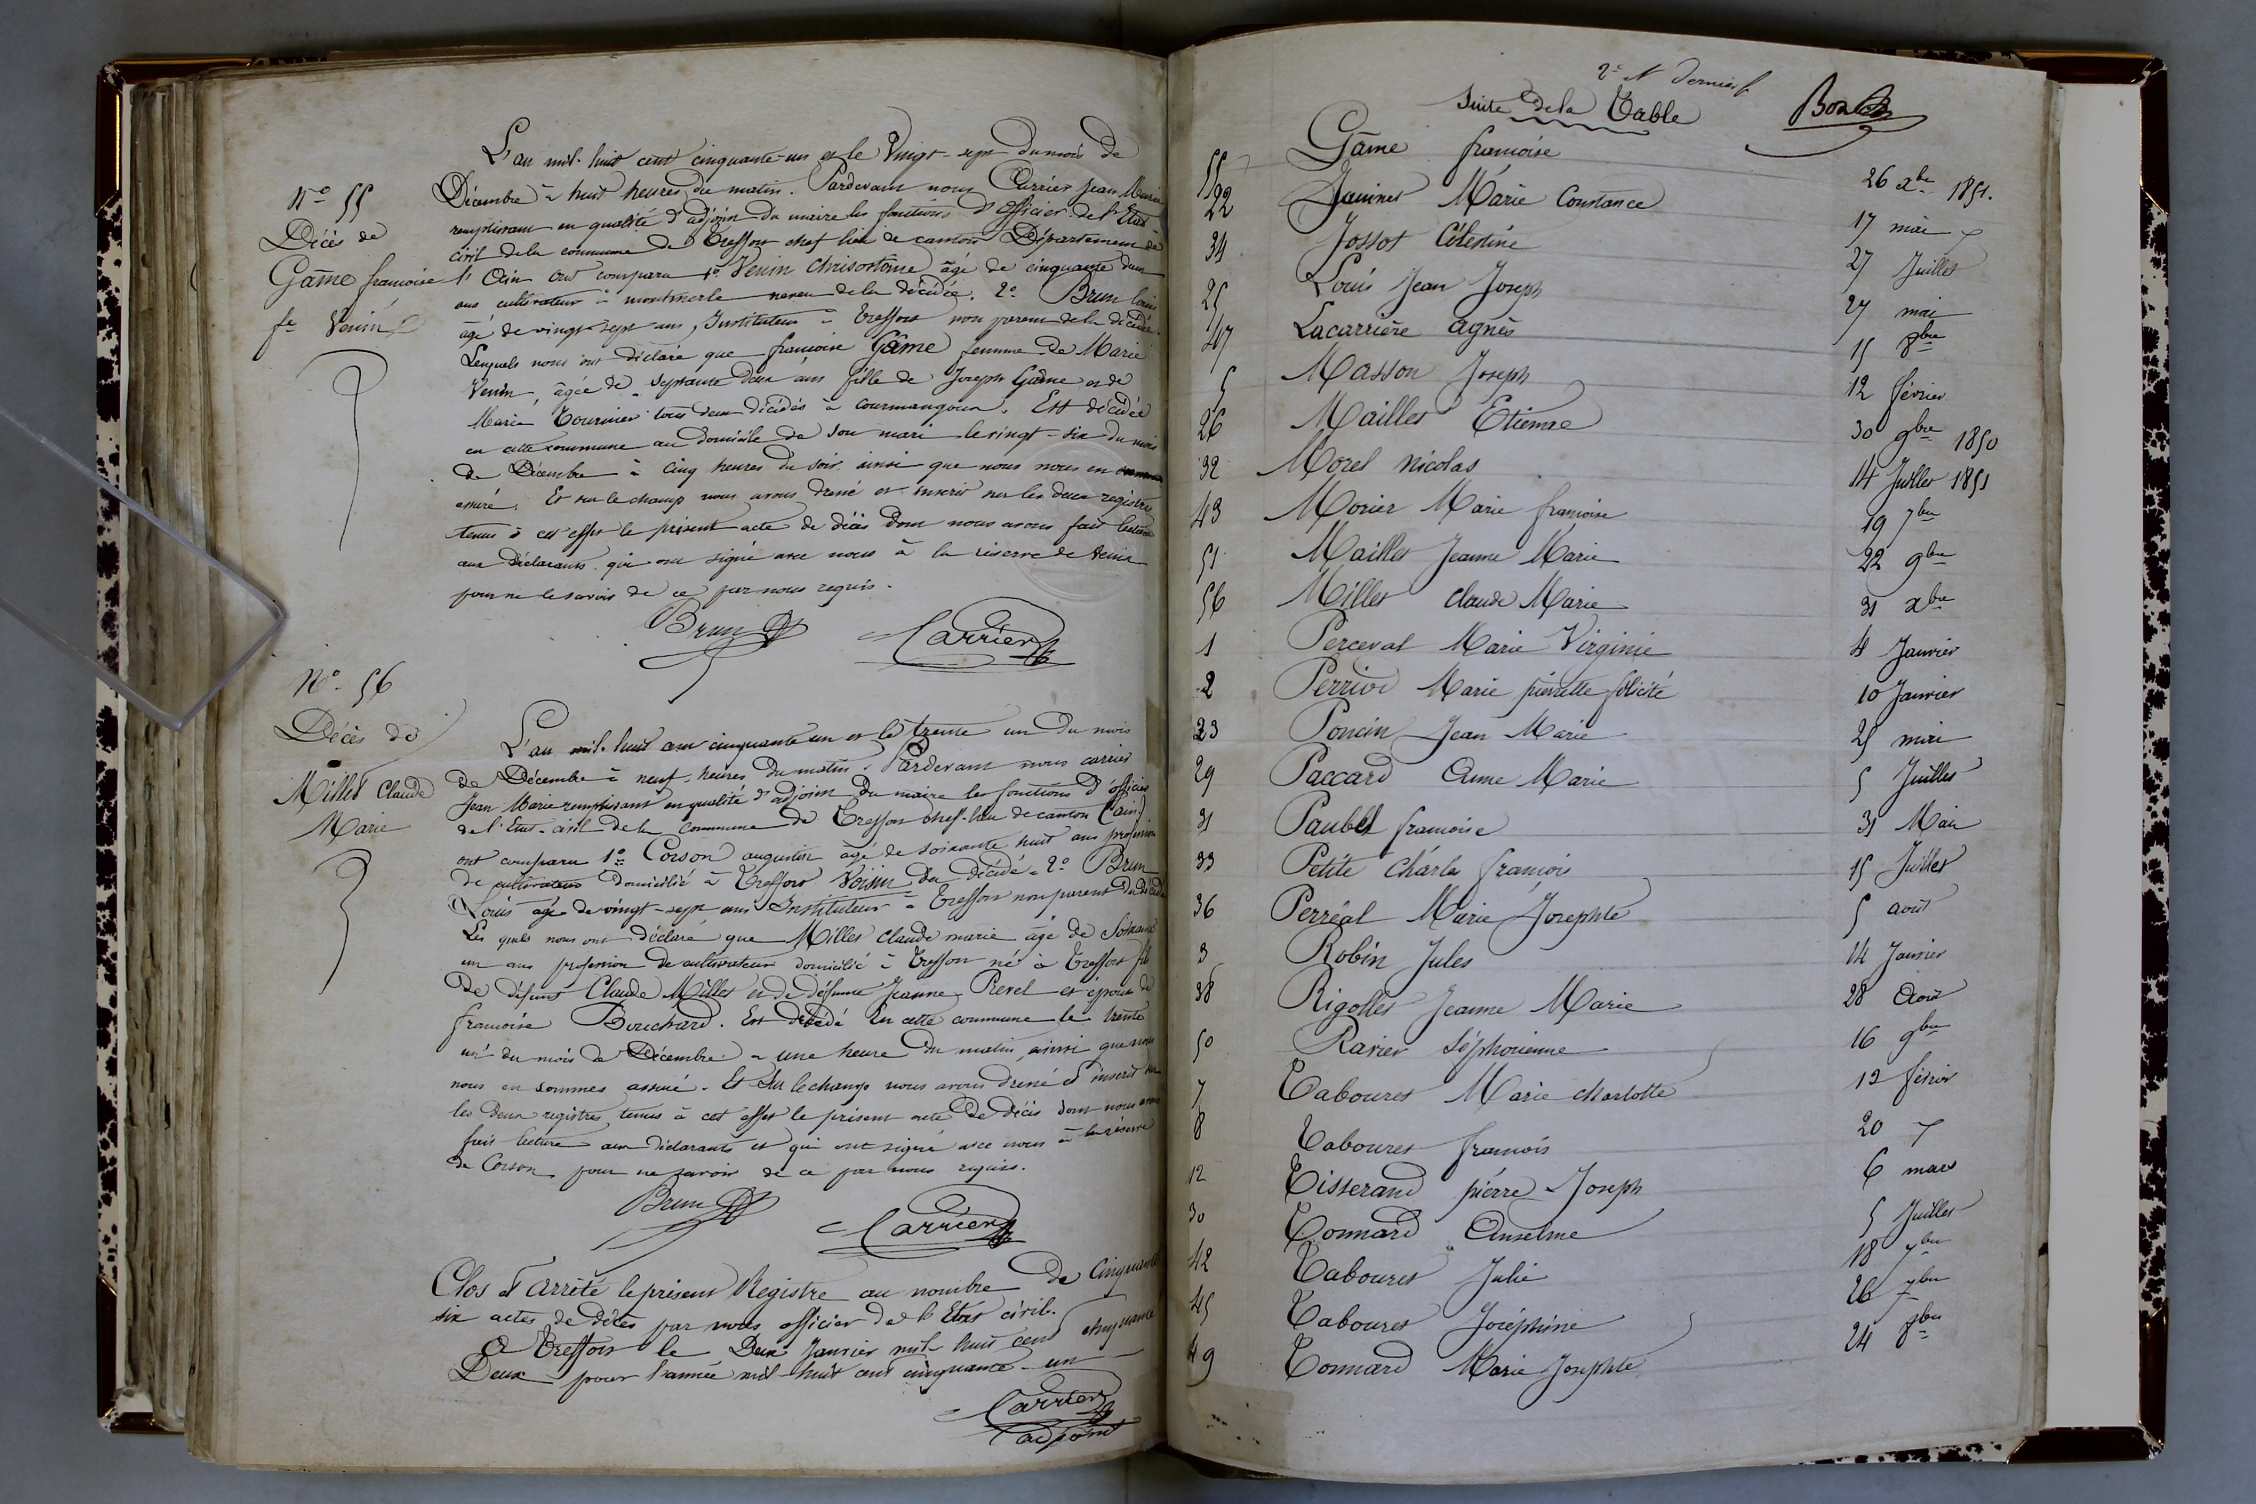 L'an mil huit cent cinquante-un et le Vingt-sept du mois de
N° 55
Décembre à huit heures du matin. Pardevant nous Carrier Jean Marie
Décès de
remplissant en qualité d'adjoint du maire les fonctions d'officier de l'Etat-
Game francoise
civil de la commune de Treffort chef lieu de canton Département de
fe Venin
l'Ain ont comparu 1° Venin Chrisostome âgé de cinquante deux
ans cultivateur à montmerle neveu de la décédée. 2° Brun Louis
âgé de vingt-sept ans, Instituteur à Treffort non parent de la décédée.
Lesquels nous ont déclaré que francoise Game femme de Marie
Venin, âgée de septante deux ans fille de Joseph Game et de
Marie Tournier tous deux décédés à courmangoux. Est décédée
en cette commune au domicile de son mari le vingt-six du mois
de Décembre à cinq heures du soir ainsi que nous nous en
assuré. Et sur le champ nous avons dressé et inscrit sur les deux registres
tenus à cet effet le présent acte de décès dont nous avons fait lecture
aux Déclarants qui ont signé avec nous à la réserve de Venin
pour ne le savoir de ce par nous requis.
Brun Carrier
N° 56
Décès de
Millet Claude
Marie
L'an mil huit cent cinquante un et le trente un du mois
de Décembre à neuf heures du matin. Pardevant nous carrier
Jean Marie remplissant en qualité d'adjoint du maire les fonctions d'officier
de l'Etat-civil de la commune de Treffort chef-lieu de canton (ain)
ont comparu 1° Corson augustin âgé de soixante huit ans profession
de cultivateur domicilié à Treffort Voisin du décédé. 2° Brun
Louis âgé de vingt-sept ans Instituteur à Treffort non parent du décédé
Les quels nous ont déclaré que Millet claude marie âgé de soixante
un ans profession de cultivateur domicilié à Treffort né à Treffort fils
de défunt Claude Millet et de défunte Jeanne Prevel et époux de
francoise Bouchard. Est décédé en cette commune le trente
un du mois de Décembre à une heure du matin ainsi que nous
nous en sommes assuré. Et sur lechamp nous avons dressé et inscrit sur
les deux registres tenus à cet effet le présent acte de décès dont nous avons
fait lecture aux déclarants et qui ont signé avec nous à la réserve
de Corson pour ne savoir de ce par nous requis.
Brun Carrier
Clos et arrêté le présent Registre au nombre de Cinquante
six actes de décès par nous officier de l'Etat civil.
A Treffort le Deux Janvier mil huit cent cinquante
Deux pour l'année mil-huit cent cinquante-un
Carrier
adjoint
2e et dernier f.
Suite de la Table
55 Game francoise 26 xbre 1851.
22 Janinet Marie Constance 17 mai
34 Jossot Célestine 27 Juillet
25 Louis Jean Joseph 27 mai
47 Lacarrière agnès 15 8bre
5 Masson Joseph 12 février
26 Maillet Etienne 30 9bre 1850
32 Morel nicolas 14 Juillet 1851
43 Morier Marie francoise 19 7bre
51 Maillet Jeanne Marie 22 9bre
56 Millet claude Marie 31 xbre
1 Perceval Marie Virginie 4 Janvier
2 Perrioc Marie pierrette félicité 10 Janvier
23 Poncin Jean Marie 25 mai
29 Paccard Aime Marie 5 Juillet
31 Paubel francoise 31 Mai
33 Petite Charles francois 15 Juillet
36 Perréal Marie Josephte 5 août
3 Robin Jules 14 Janvier
38 Rigollet Jeanne Marie 28 Août
50 Ravier Séphorienne 16 9bre
7 Tabouret Marie charlotte 12 février
8 Tabouret francois 20
12 Tisserand pierre Joseph 6 mars
30 Tonnard Anselme 5 Juillet
42 Tabouret Julie 18 7bre
45 Tabouret Joséphine 26 7bre
49 Tonnard Marie Josephte 24 8bre